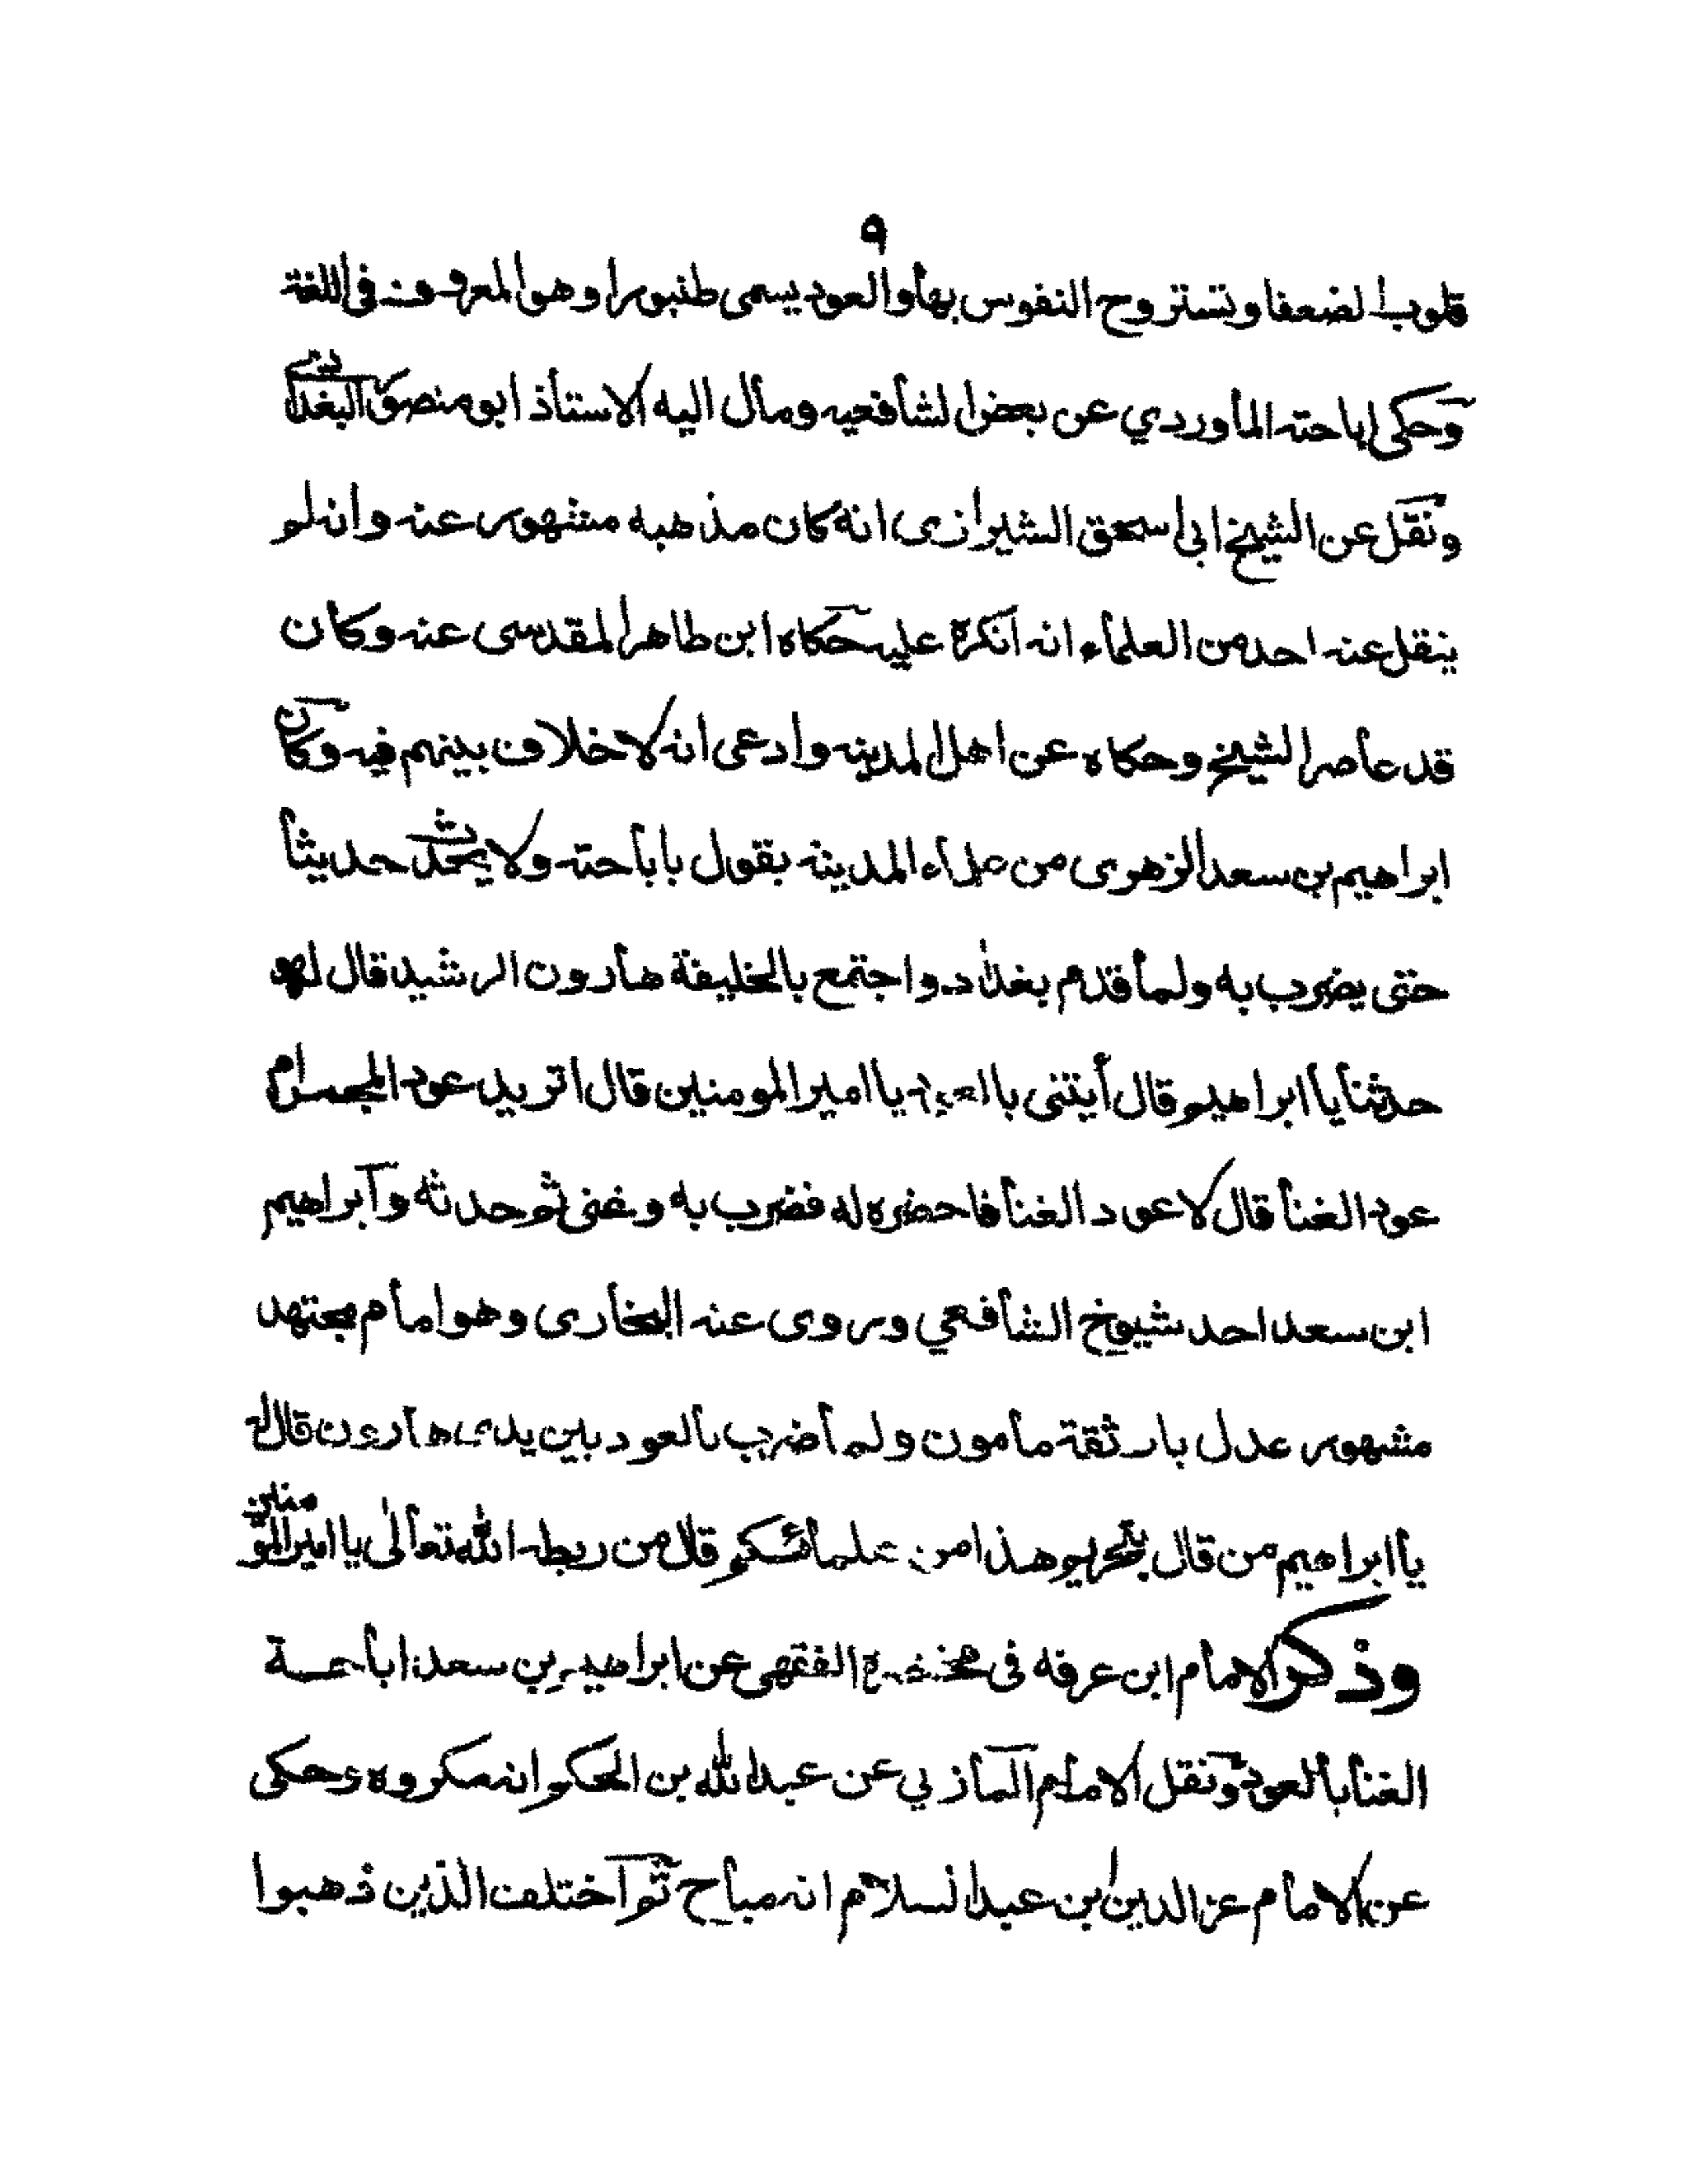 ٩
قلوب الضعفا وتستروح النفوس بها والعود يسمى طنبورا وهو المعروف في اللغة
وحكى اباحته الماوردي عن بعض الشافعيه ومال اليه الاستاذ ابو منصور البغدادي
ونقل عن الشيخ ابى اسحق الشيرازى انه كان مذهبه مشهور عنه وانه لم
ينقل عنه احد من العلماء انه انكره عليه حكاه ابن طاهر المقدسى عنه وكان
قد عاصر الشيخ وحكاه عن اهل المدينه وادعى انه لا خلاف بينهم فيه وكان
ابراهيم بن سعد الزهرى من علماء المدينه يقول باباحته ولا يحدث حديثا
حتى يضرب به ولما قدم بغداد واجتمع بالخليفة هارون الرشيد قال له
حدثنا يا ابراهيم قال أيتنى بالعود يا امير المومنين قال اتريد عود المجمر ام
عود الغنا قال لا عود الغنا فاحضره له فضرب به وغنى ثم حدثه وابراهيم
ابن سعد احد شيوخ الشافعي وروى عنه البخارى وهو امام مجتهد
مشهور عدل بار ثقة مامون ولما ضرب بالعود بين يدى هارون قال له
يا ابراهيم من قال بتحريم هذا من علمائكم قال من ربطه الله تعالى يا امير المومنين
وذكر الامام ابن عرفه فى مختصره الفقهى عن ابراهيم بن سعد اباحة
الغنا بالعود ونقل الامام المازني عن عبد الله بن الحكم انه مكروه وحكى
عن الامام عز الدين ابن عبد السلام انه مباح ثم اختلف الذين ذهبوا